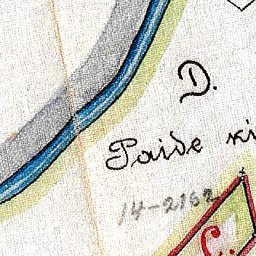 D.
Paide ki
14-2162
C.